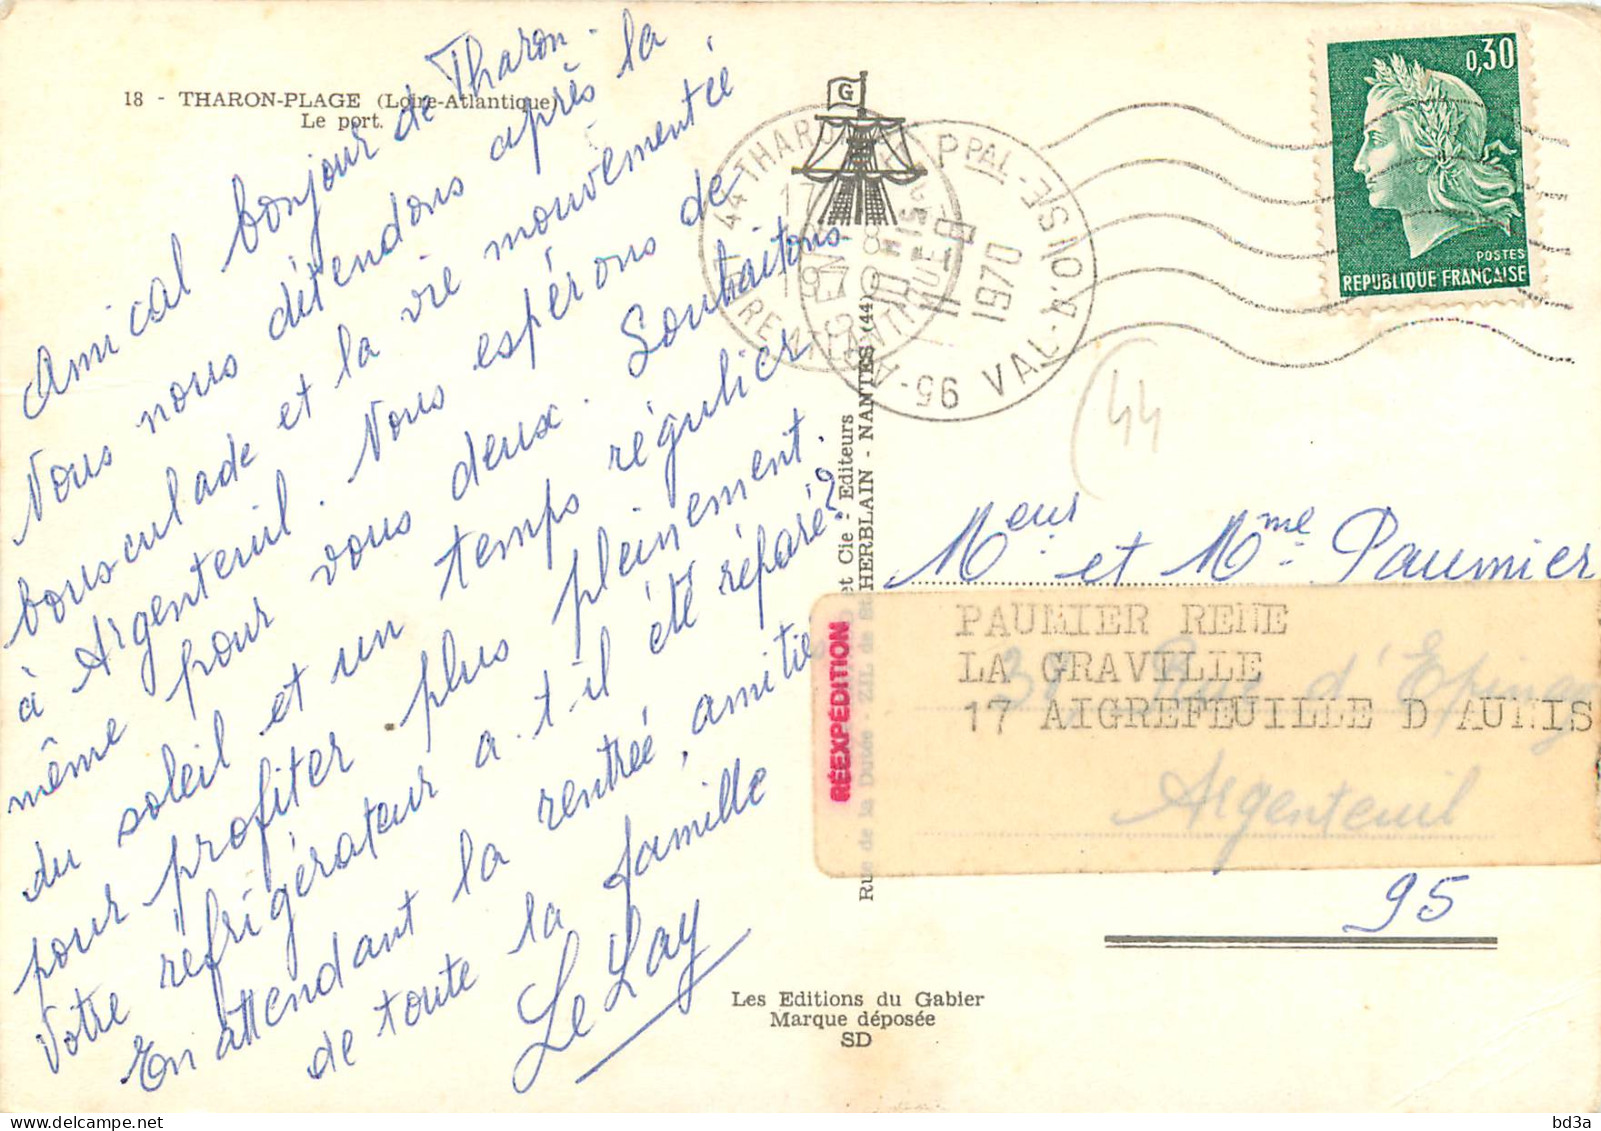 18 - THARON-PLAGE (Loire-Atlantique)
Le port.
Amical bonjour de Tharon.
Nous nous détendons après la
bousculade et la vie mouvementée
à Argenteuil. Nous espérons de
même pour vous deux. Souhaitons
du soleil et un temps régulier
pour profiter plus pleinement.
Votre réfrigérateur a-t-il été réparé?
En attendant la rentrée, amitié
de toute la famille
Le Lay
G
44 THARON
ATLANTIQUE
PPAL
95
VAL-D'OISE
11-8
1970
0,30
POSTES
REPUBLIQUE FRANÇAISE
(44
et Cie - Editeurs
Rue de la Dutée - ZIL de HERBLAIN - NANTES (44)
Meur et Mme Paumier
RÉEXPÉDITION
PAUMIER RENE
LA GRAVILLE
17 AIGREFEUILLE D AUNIS
Rue d'Epinay
Argenteuil
95
Les Editions du Gabier
Marque déposée
SD
bd3a